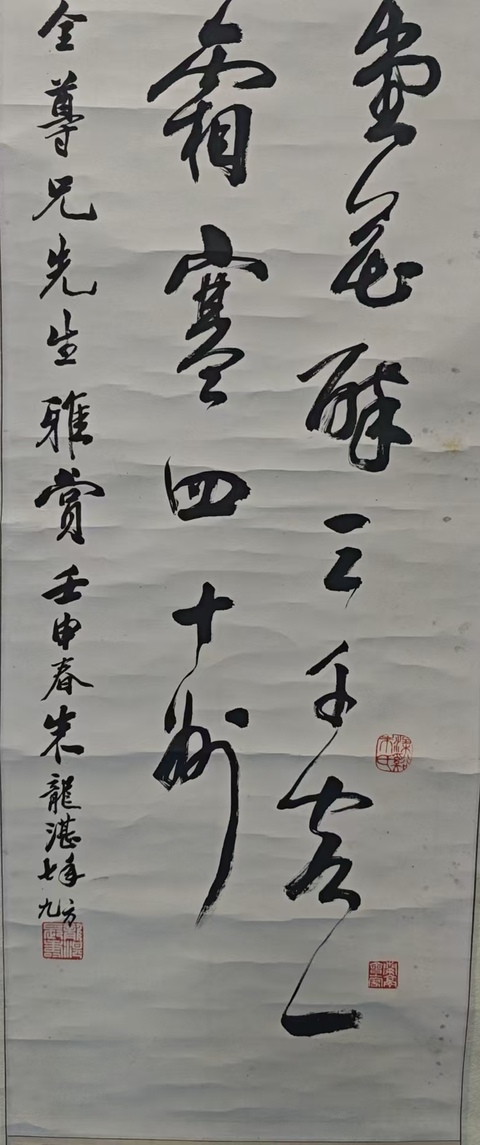 堂花醉三千客一
霜寒四十州
全尊兄先生雅賞壬申春朱龍湛年方七九